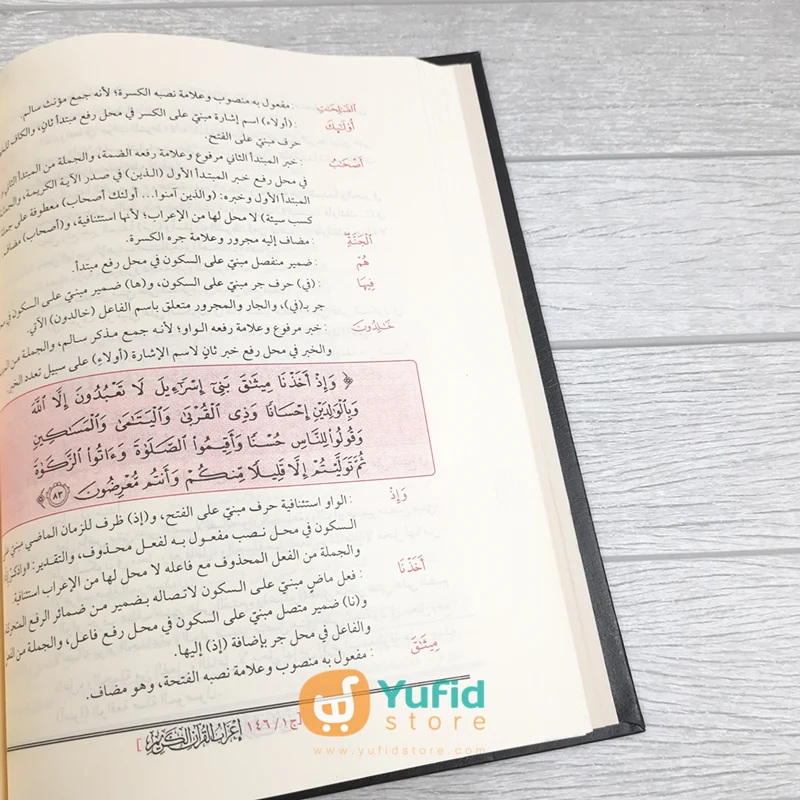 ٱلصَّٰلِحَٰتِ : مفعول به منصوب وعلامة نصبه الكسرة؛ لأنه جمع مؤنث سالم.
أُوْلَٰٓئِكَ : (أولاء) اسم إشارة مبنيّ على الكسر في محل رفع مبتدأ ثانٍ، والكاف
حرف مبنيّ على الفتح.
أَصْحَٰبُ : خبر المبتدأ الثاني مرفوع وعلامة رفعه الضمة، والجملة من المبتدأ الثاني
في محل رفع خبر المبتدأ الأول (الذين) في صدر الآية الكريمة،
المبتدأ الأول وخبره: (والذين آمنوا... أولئك أصحاب) معطوفة على
كسب سيئة) لا محل لها من الإعراب؛ لأنها استئنافية، و(أصحاب) مضاف.
ٱلْجَنَّةِ : مضاف إليه مجرور وعلامة جره الكسرة.
هُمْ : ضمير منفصل مبنيّ على السكون في محل رفع مبتدأ.
فِيهَا : (في) حرف جر مبنيّ على السكون، و(ها) ضمير مبنيّ على السكون في
جر بـ(في)، والجار والمجرور متعلق باسم الفاعل (خالدون) الآتي.
خَٰلِدُونَ : خبر مرفوع وعلامة رفعه الواو؛ لأنه جمع مذكر سالم، والجملة من
والخبر في محل رفع خبر ثانٍ لاسم الإشارة (أولاء) على سبيل تعدد الخبر.
﴿ وَإِذْ أَخَذْنَا مِيثَٰقَ بَنِىٓ إِسْرَٰٓءِيلَ لَا تَعْبُدُونَ إِلَّا ٱللَّهَ
وَبِٱلْوَٰلِدَيْنِ إِحْسَانًا وَذِى ٱلْقُرْبَىٰ وَٱلْيَتَٰمَىٰ وَٱلْمَسَٰكِينِ
وَقُولُوا۟ لِلنَّاسِ حُسْنًا وَأَقِيمُوا۟ ٱلصَّلَوٰةَ وَءَاتُوا۟ ٱلزَّكَوٰةَ
ثُمَّ تَوَلَّيْتُمْ إِلَّا قَلِيلًا مِّنكُمْ وَأَنتُم مُّعْرِضُونَ ٨٣ ﴾
وَإِذْ : الواو استئنافية حرف مبنيّ على الفتح، و(إذ) ظرف للزمان الماضي مبنيّ
السكون في محل نصب مفعول به لفعل محذوف، والتقدير:
والجملة من الفعل المحذوف مع فاعله لا محل لها من الإعراب استئنافية.
أَخَذْنَا : فعل ماضٍ مبنيّ على السكون لاتصاله بضمير من ضمائر الرفع المتحركة
و(نا) ضمير متصل مبنيّ على السكون في محل رفع فاعل، والجملة من
والفاعل في محل جر بإضافة (إذ) إليها.
مِيثَٰقَ : مفعول به منصوب وعلامة نصبه الفتحة، وهو مضاف.
[ إعراب القرآن الكريم ج١/ ١٤٦
Yufid
store
www.yufidstore.com